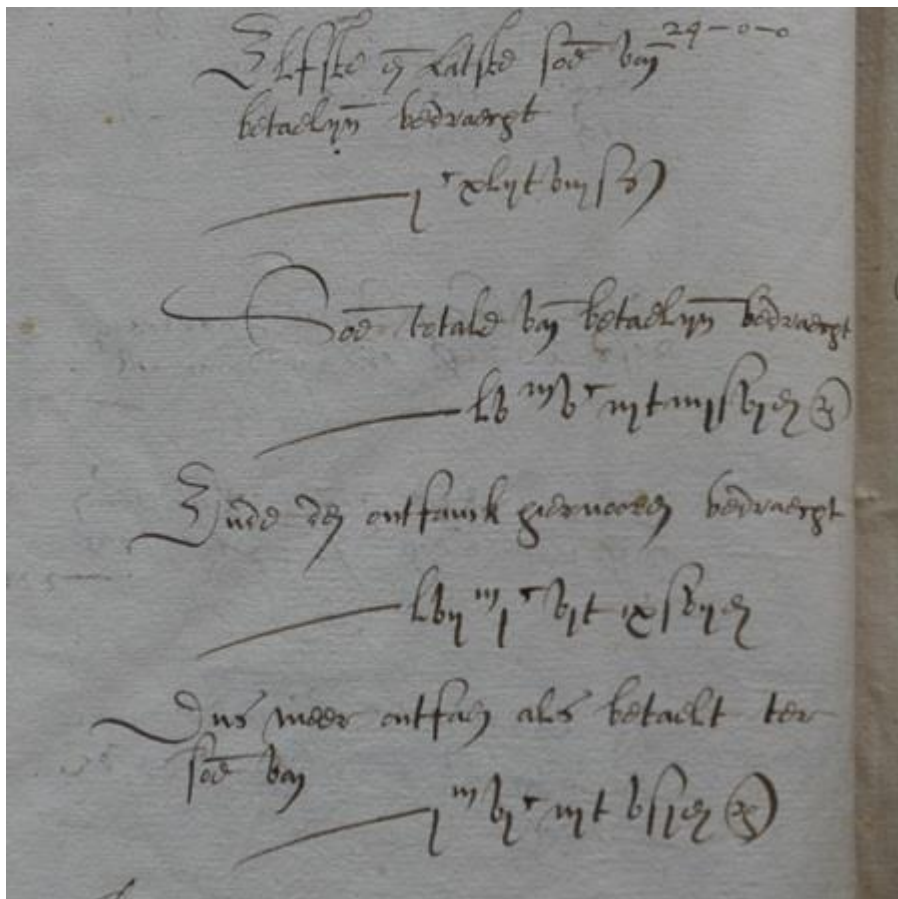 24-0-0
Elfste en latste som van
betaelyn bedraecht
j c xlij t viij s
Som totale van betaelyn bedraecht
lv m v c iij t iiij s vj d
Ende den ontfanck hiervooren bedraecht
lvij m j c vj t ix s vij d
Dus meer ontfaen als betaelt ter
som van
j m vj c iij t v s j d